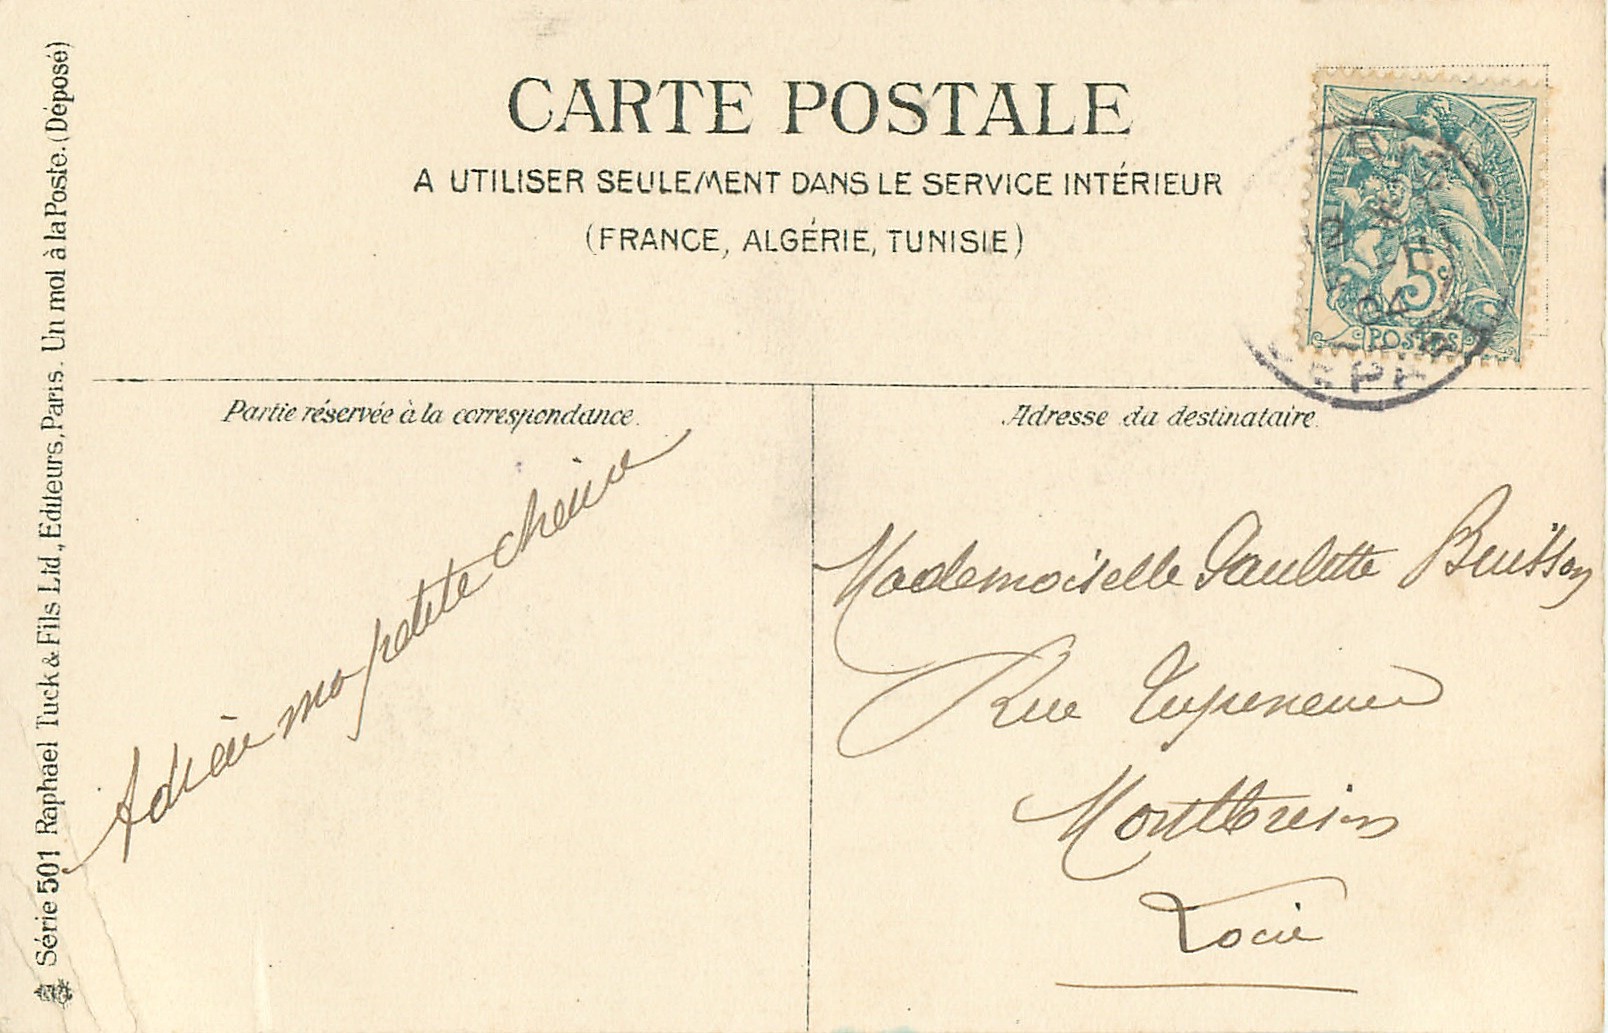 CARTE POSTALE
A UTILISER SEULEMENT DANS LE SERVICE INTÉRIEUR
(FRANCE, ALGÉRIE, TUNISIE)
RÉPUBLIQUE FRANÇAISE
5c
POSTES
04
Partie réservée à la correspondance.
Adresse du destinataire.
Adieu ma petite chérie
Mademoiselle Paulette Buisson
Rue
Montbrison
Loire
Série 501 Raphael Tuck & Fils Ltd, Editeurs, Paris. Un mot à la Poste. (Déposé)